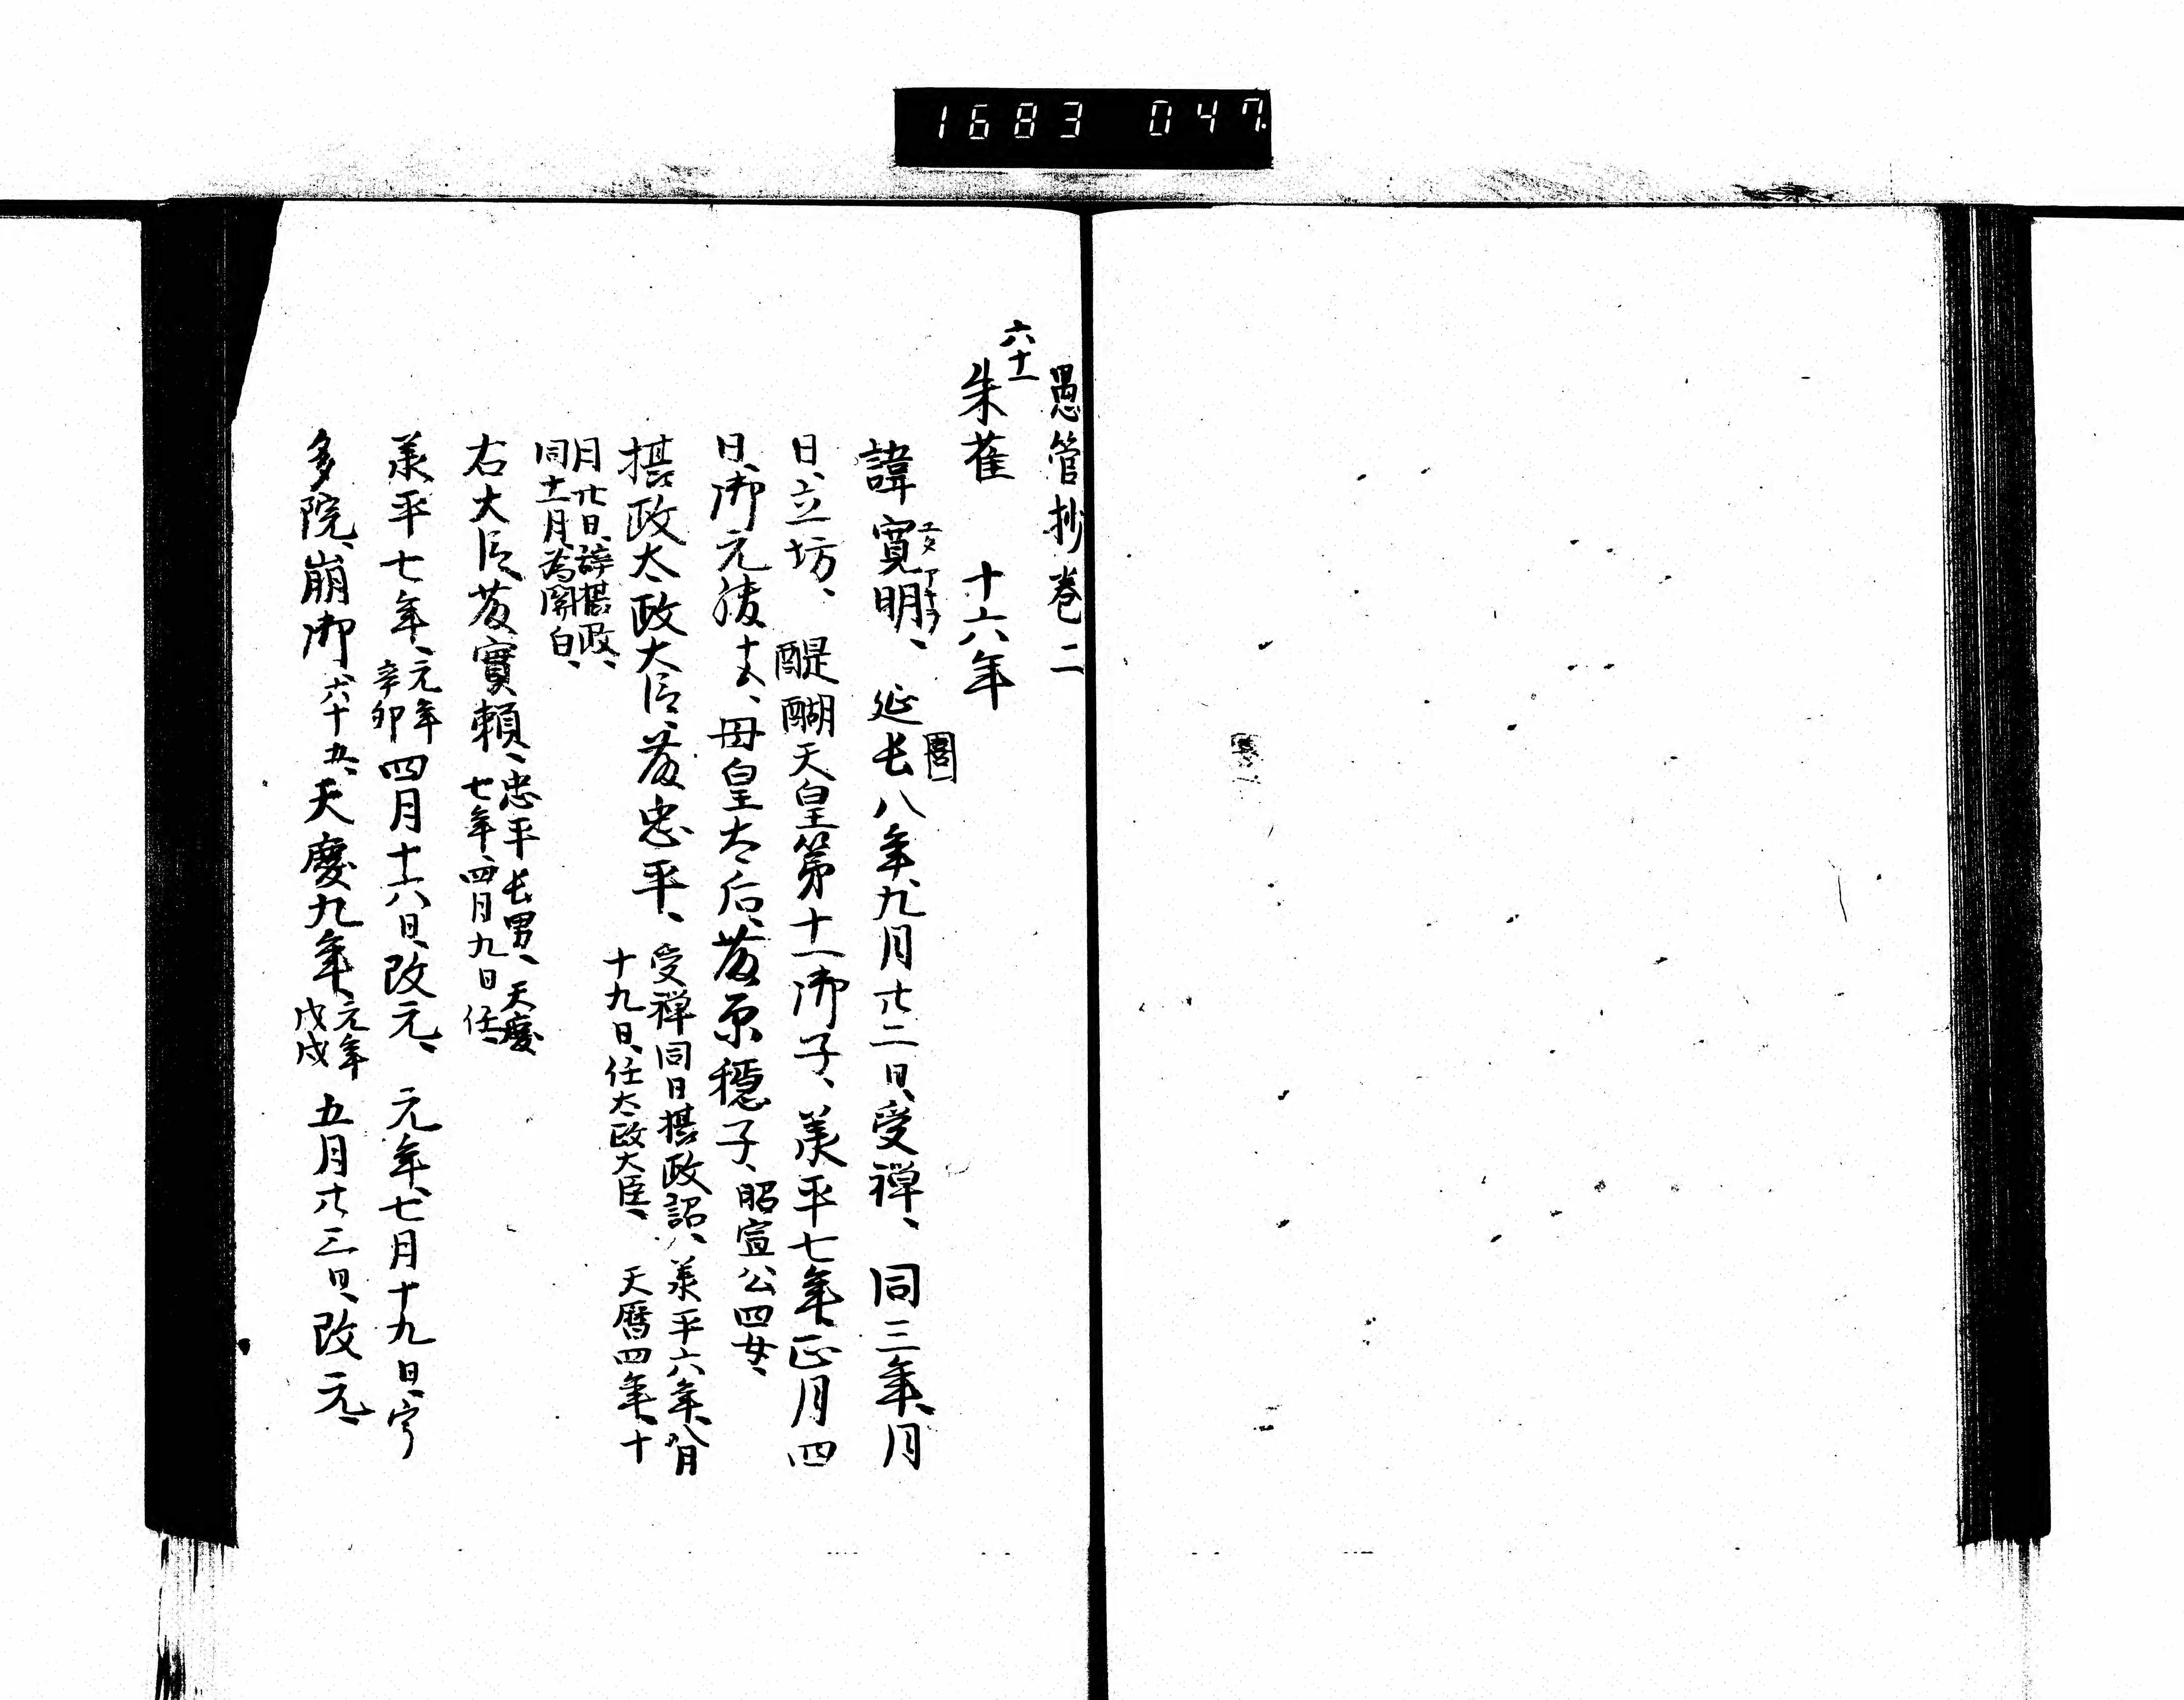 1683 047.
愚管抄巻二
六十一
朱雀　十六年
諱寛明、延长八年、九月廿二日、受禅、同三年、月
日、立坊、醍醐天皇第十一御子、承平七年、正月四
日、御元服、十五、母皇太后、藤原穏子、昭宣公四女、
摂政太政大臣、藤忠平、受禅同日摂政詔、承平六年、八月
十九日、任太政大臣、天暦四年、十
月廿日、辞摂政、
同十一月、為関白、
右大臣藤實頼、忠平长男、天慶
七年、四月九日任、
承平七年、元年
辛卯
四月十六日、改元、元年、七月十九日、宇
多院、崩御、六十五、天慶九年、元年
戊戌
五月廿三日、改元、